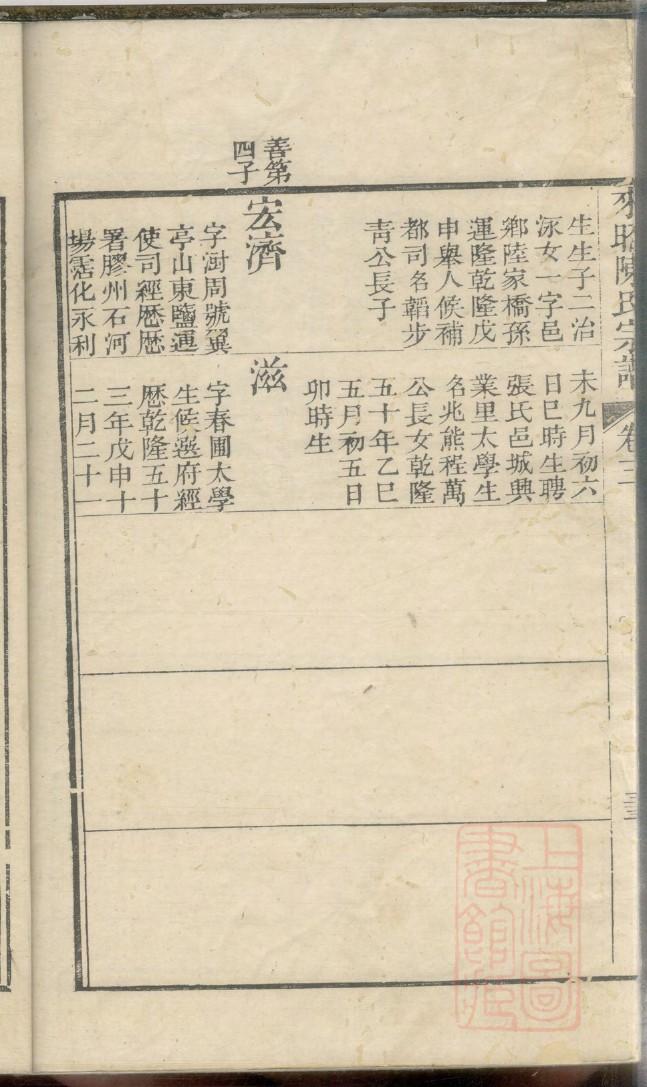 陳氏宗譜 卷三
生生子二治
泳女一字邑
鄉陸家橋孫
運隆乾隆戊
申舉人候補
都司名韜步
青公長子
善第
四子
宏濟
字澍周號巽
亭山東鹽運
使司經歷歷
署膠州石河
場霑化永利
未九月初六
日巳時生聘
張氏邑城興
業里太學生
名兆熊程萬
公長女乾隆
五十年乙巳
五月初五日
卯時生
滋
字春圃太學
生候選府經
歷乾隆五十
三年戊申十
二月二十一
上海圖
書館藏